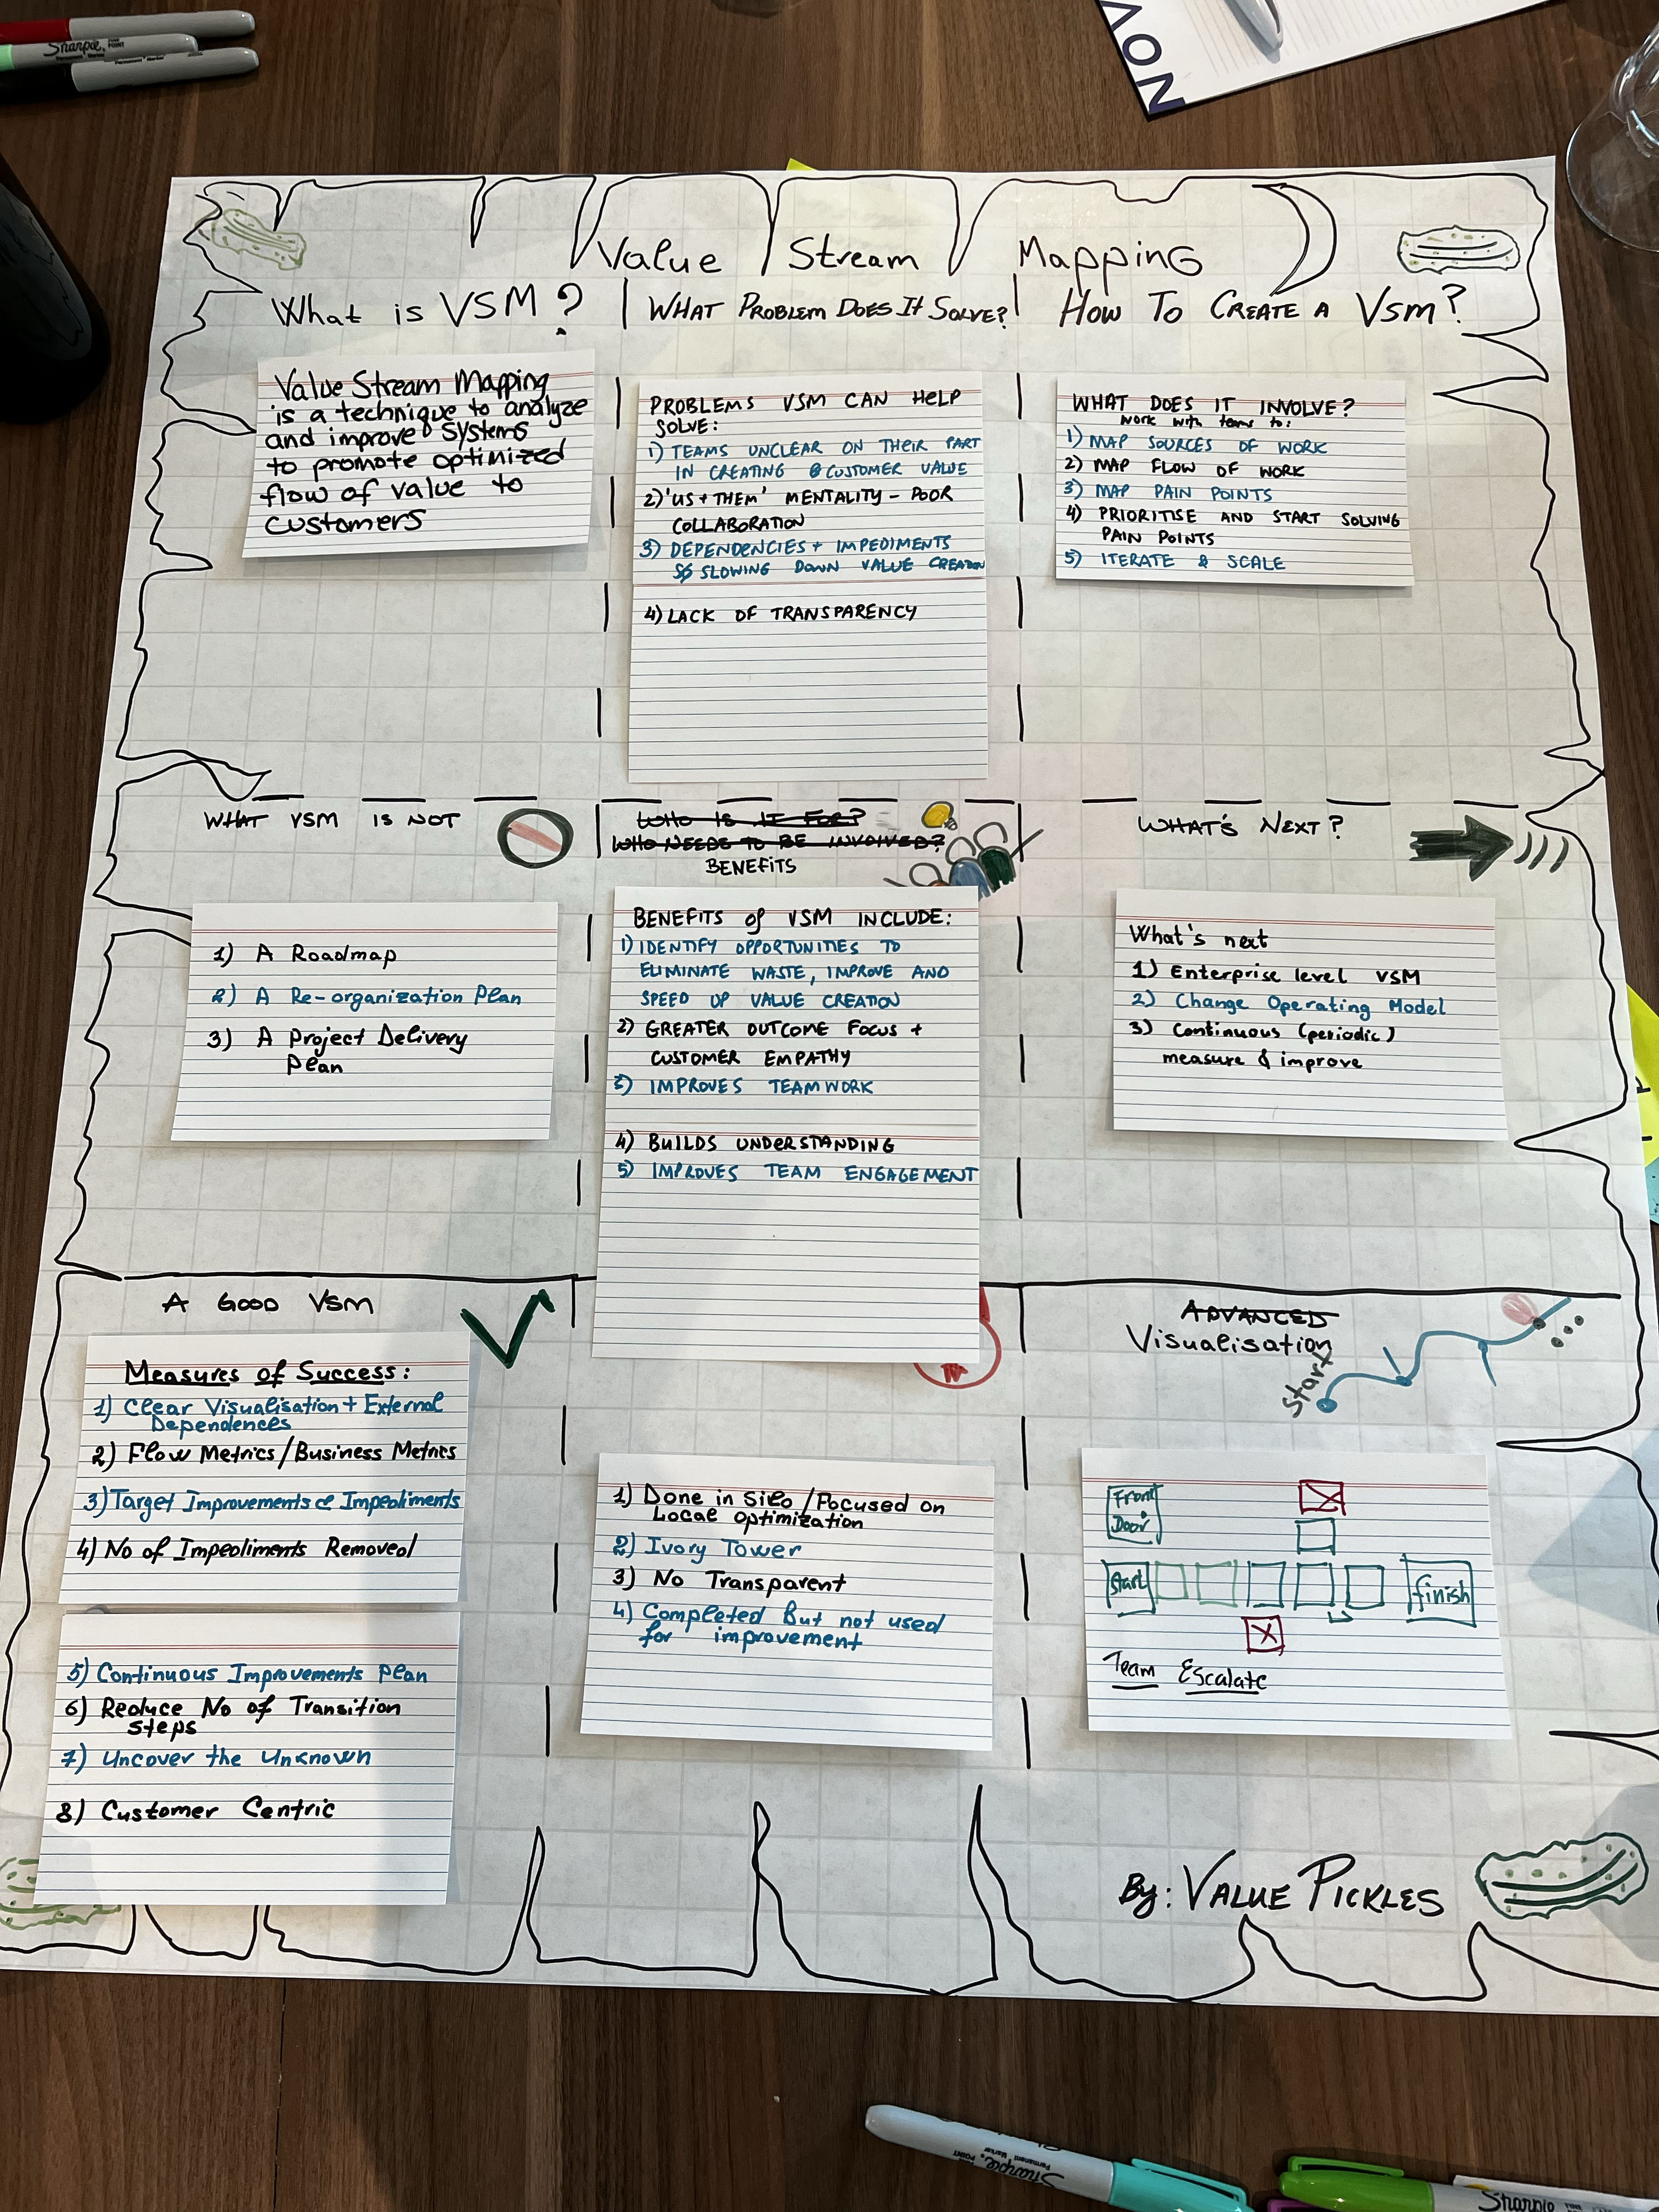 Sharpie
FINE POINT
Permanent Marker
NOV
Value Stream Mapping
What is VSM?
WHAT PROBLEM DOES IT SOLVE?
HOW TO CREATE A VSM?
Value Stream Mapping
is a technique to analyze
and improve systems
to promote optimized
flow of value to
customers
PROBLEMS VSM CAN HELP
SOLVE:
1) TEAMS UNCLEAR ON THEIR PART
IN CREATING CUSTOMER VALUE
2) 'US + THEM' MENTALITY - POOR
COLLABORATION
3) DEPENDENCIES + IMPEDIMENTS
SLOWING DOWN VALUE CREATION
4) LACK OF TRANSPARENCY
WHAT DOES IT INVOLVE?
Work with teams to:
1) MAP SOURCES OF WORK
2) MAP FLOW OF WORK
3) MAP PAIN POINTS
4) PRIORITISE AND START SOLVING
PAIN POINTS
5) ITERATE & SCALE
WHAT VSM IS NOT
1) A Roadmap
2) A Re-organization Plan
3) A Project Delivery
Plan
WHO IS IT FOR?
WHO NEEDS TO BE INVOLVED?
BENEFITS
BENEFITS of VSM INCLUDE:
1) IDENTIFY OPPORTUNITIES TO
ELIMINATE WASTE, IMPROVE AND
SPEED UP VALUE CREATION
2) GREATER OUTCOME FOCUS +
CUSTOMER EMPATHY
3) IMPROVES TEAMWORK
4) BUILDS UNDERSTANDING
5) IMPROVES TEAM ENGAGEMENT
WHAT'S NEXT?
What's next
1) Enterprise level VSM
2) Change Operating Model
3) Continuous (periodic)
measure & improve
A GOOD VSM
Measures of Success:
1) Clear Visualisation + External
Dependences
2) Flow Metrics/Business Metrics
3) Target Improvements & Impediments
4) No of Impediments Removed
5) Continuous Improvements Plan
6) Reduce No of Transition
steps
7) Uncover the Unknown
8) Customer Centric
1) Done in Silo/Focused on
Local optimization
2) Ivory Tower
3) No Transparent
4) Completed But not used
for improvement
ADVANCED
Visualisation
Start
Front
Door
Start
finish
Team Escalate
By: VALUE PICKLES
Sharpie
Permanent Marker
Sharpie